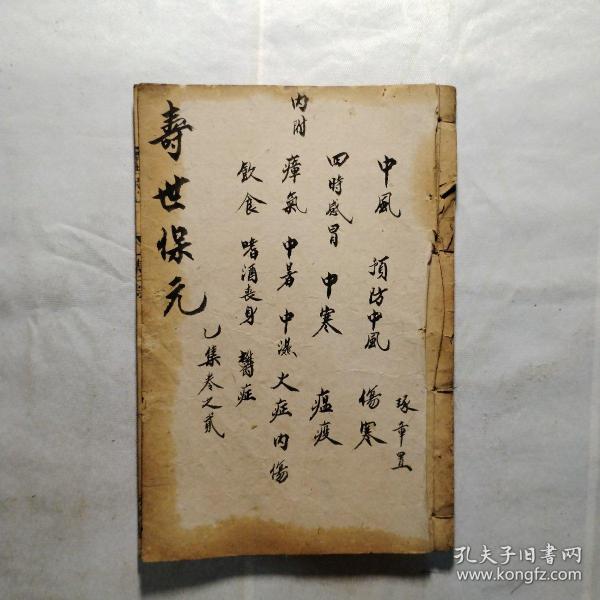 琢章置
中風 預防中風 傷寒
四時感冒 中寒 瘟疫
內附 瘴氣 中暑 中濕 火症 內傷
飲食 嗜酒喪身 鬱症
壽世保元
乙集卷之貳
孔夫子旧书网
www.kongfz.com